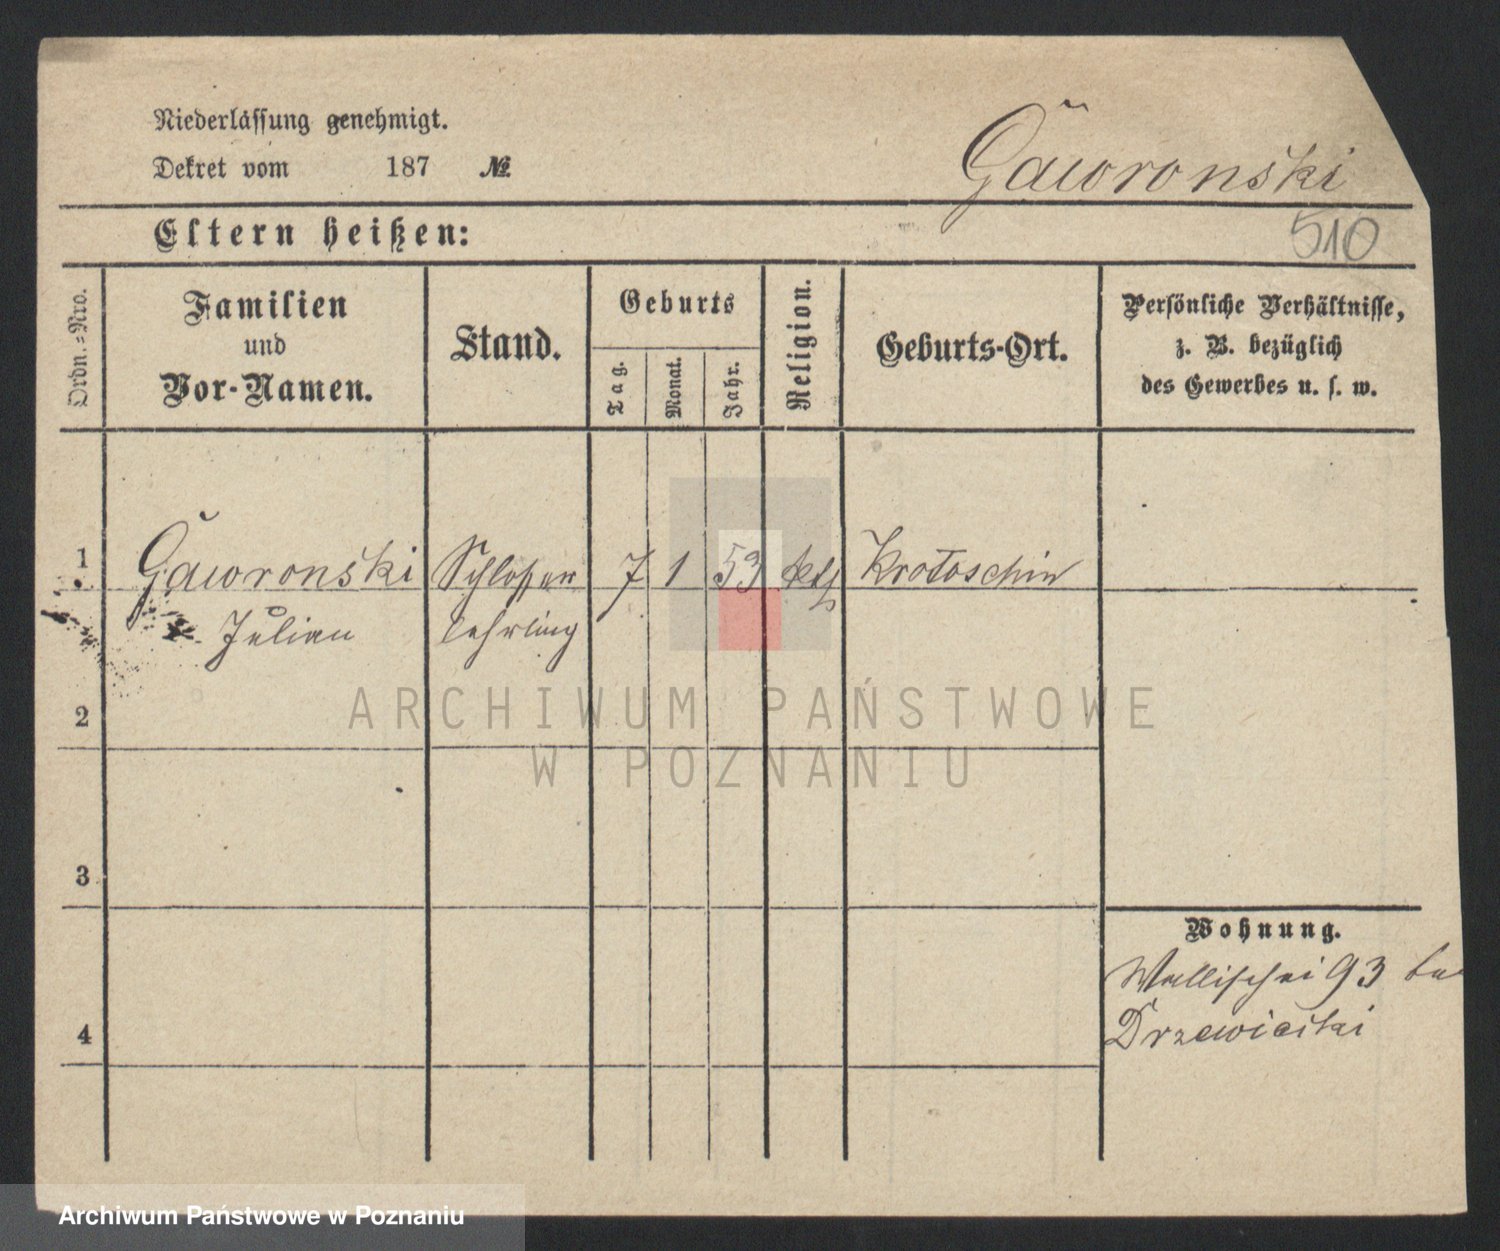 Niederlassung genehmigt.
Dekret vom 187 №
Gaworonski
510
Eltern heißen:
Ordn.-Nro.
Familien
und
Vor-Namen.
Stand.
Geburts
Tag.
Monat.
Jahr.
Religion.
Geburts-Ort.
Persönliche Verhältnisse,
z. B. bezüglich
des Gewerbes u. s. w.
1 Gaworonski Schlosser 7 1 53 kth Krotoschin
Julian lehrling
2
3
4
Wohnung.
Wallischei 93 bei
Drzewiecki
ARCHIWUM PAŃSTWOWE
W POZNANIU
Archiwum Państwowe w Poznaniu